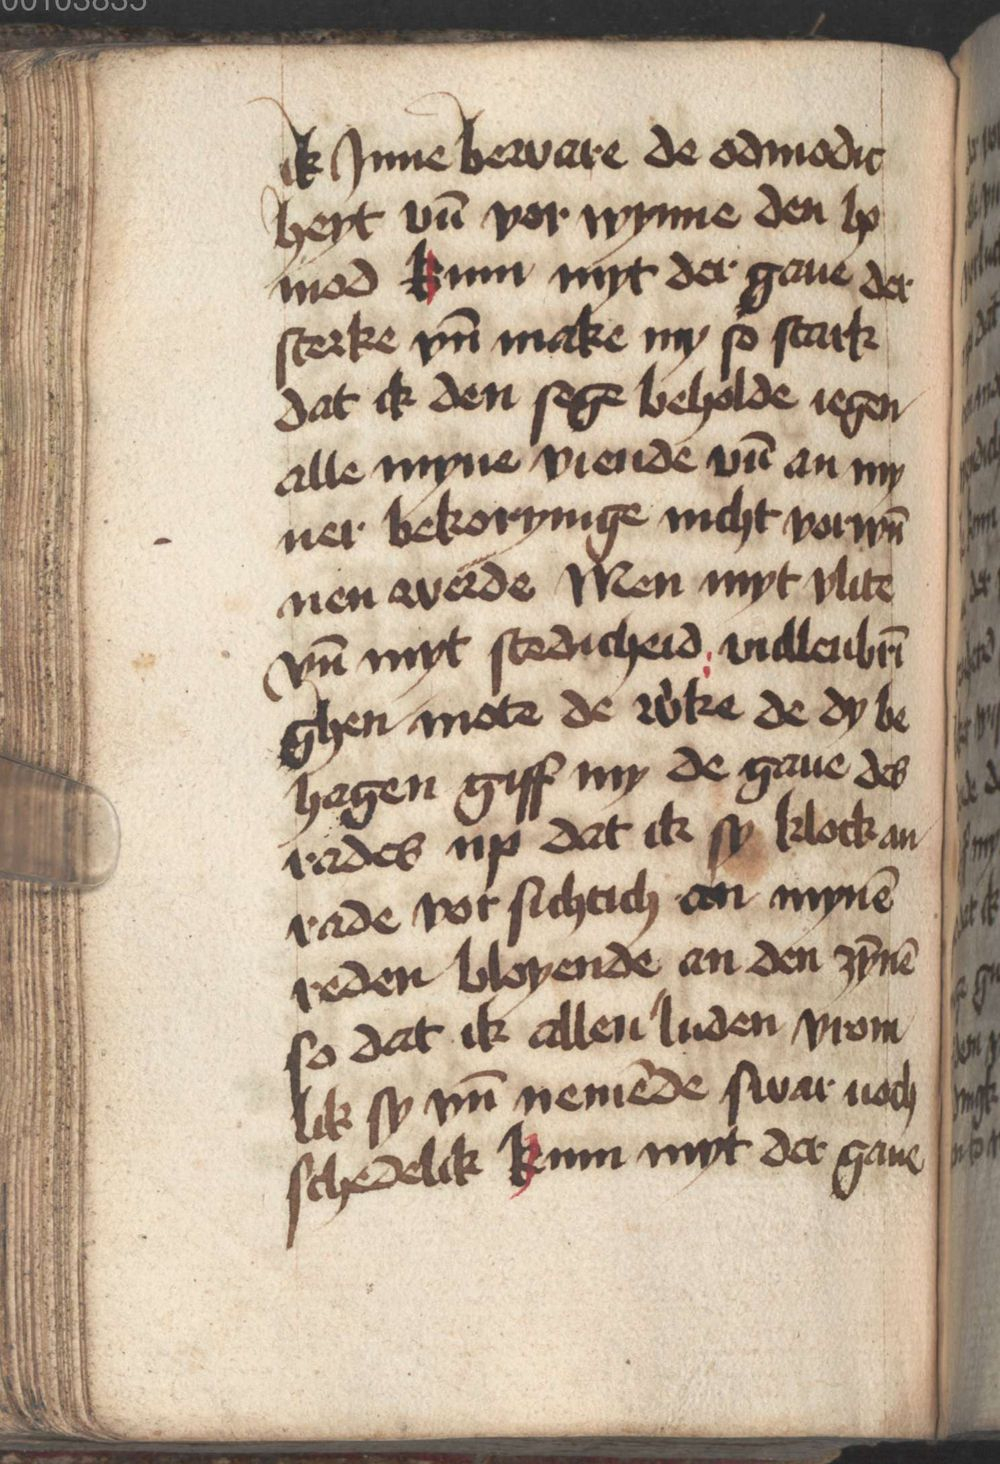 00103835
ik Jnne beware de odmodic
heyt vn̄ vor wynne den ho
mod kum myt der gaue der
sterke vn̄ make my so stark
dat ik den sege beholde iegen
alle myne viende vn̄ an my
ner bekorynge nicht vorwn̄
nen werde Men myt vlite
vn̄ myt stedicheid vullenbrī
ghen mote de wͦke de dy be
hagen giff my de gaue des
rades up dat ik sy klock an
rade vor sichtich an mynē
reden bloyende an den zȳnē
so dat ik allen luden vrom
lik sy vn̄ nemēde swar noch
schedelick kum myt der gaue